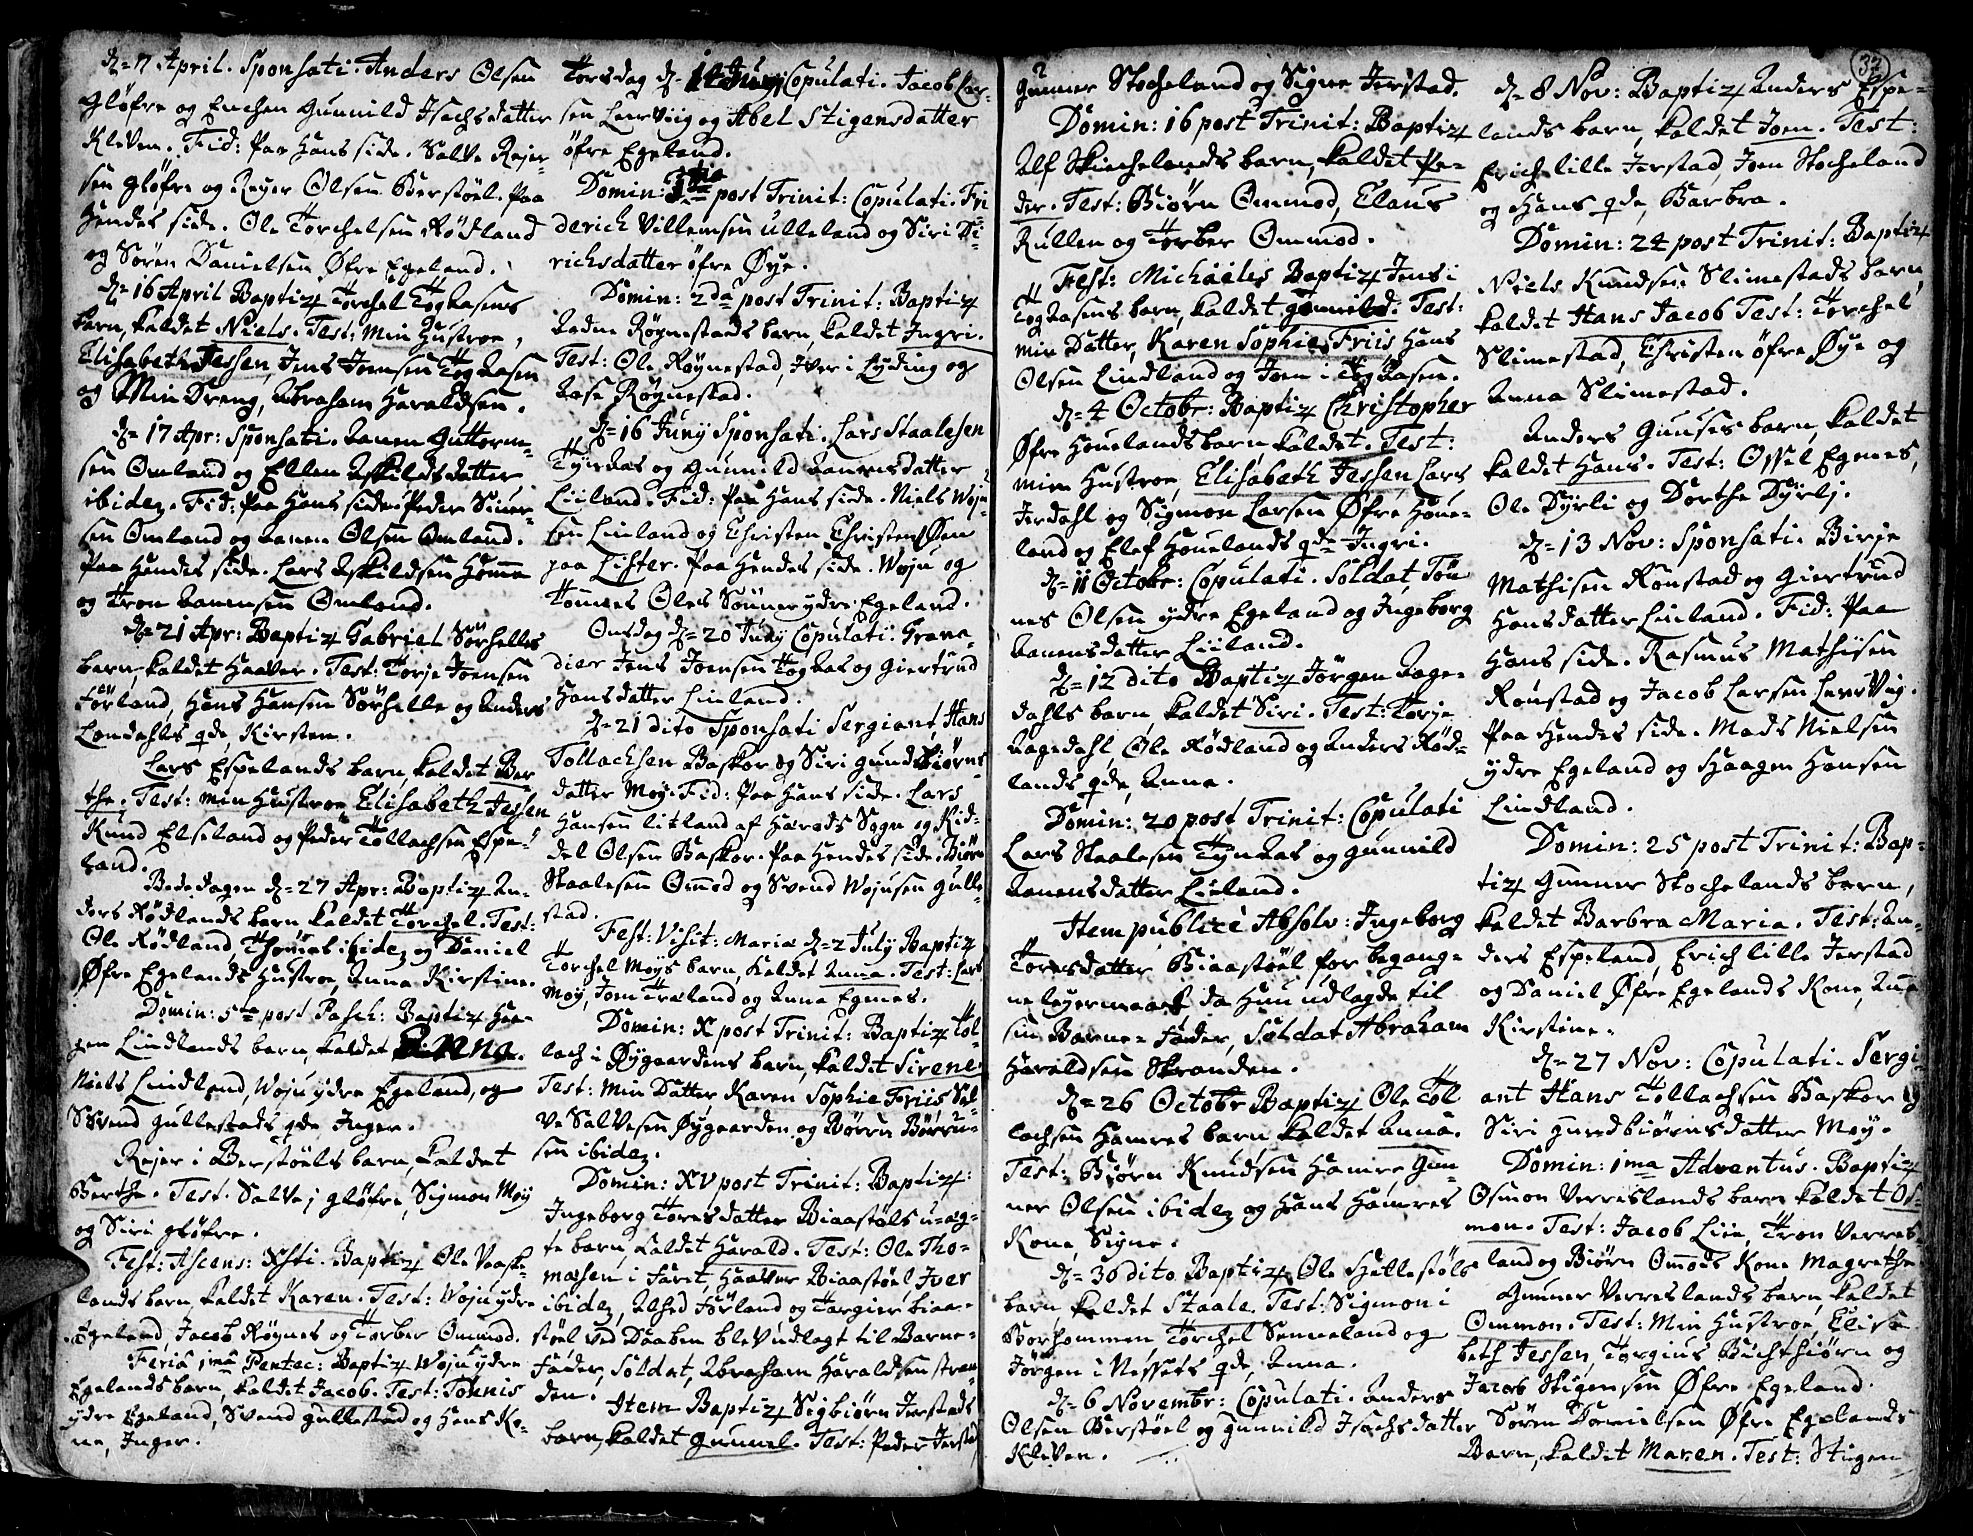 d= 7 April. Sponsati. Anders Olsen
Gløfre og Enchen Gunnild Isachsdatter
Kleven. Fid: Paa Hans side. Salve Rejer
sen Gløfre og Rejer Olsen Berstøel. Paa
Hendes side. Ole Torchelsen Rødland
og Søren Danielsen Øfre Egeland.
d= 16 April Baptiz Torchel Togaasens
barn, kaldet Niels. Test: Min Hustroe,
Elisabeth Jessen, Jens Joensen Togaasen
og Min Dreng, Abraham Haraldsen.
d= 17 Apr: Sponsati. Aanen Guttorm-
sen Omland og Ellen Askildsdatter
ibidem. Fid: Paa Hans side. Peder Siuer-
sen Omland og Aanen Olsen Omland.
Paa Hendes side. Lars Askildsen Homme
og Tron Aanensen Omland.
d= 21 Apr: Baptiz Gabriel Sørhelles
barn, kaldet Haaver. Test: Torje Joensen
Førland, Hans Hansen Sørhelle og Anders
Londahls qde, Kirsten.
Lars Espelands barn kaldet Ber-
the. Test: min Hustroe Elisabeth Jessen
Knud Elseland og Peder Tollachsen Espe-
land.
Bededagen d= 27 Apr: Baptiz An-
ders Rødlands barn kaldet Torchel. Test:
Ole Rødland, Thomas ibidem og Daniel
Øfre Egelands Hustroe, Anna Kirstine.
Domin: 5te post Pasch: Baptiz Haa-
gen Lindlands barn, kaldet Anna.
Niels Lindland, Woju ydre Egeland, og
Svend Gullestads qde Inger.
Rejer i Berstøels barn, kaldet
Berthe. Test. Salve i Gløfre, Sigmon Moy
og Siri Gløfre.
Fest: Ascens: Xsti. Baptiz Ole Vaase-
lands barn, kaldet Karen. Test: Woju ydre
Egeland, Jacob Røynes og Torber Ommod.
Feria 1ma Pentec: Baptiz Woju ydre
Egelands barn, kaldet Jacob. Test: Tønnis
ydre Egeland, Svend Gullestad og Hans Ko-
ne, Inger.
Torsdag d= Juny Copulati. Jacob Lar-
sen Leervig og Abel Stigensdatter
øfre Egeland.
Domin: post Trinit: Copulati. Fri
derich Villemsen Ulleland og Siri Di-
richsdatter øfre Øye.
Domin: 2da post Trinit: Baptiz
Aadne Røynestads barn, kaldet Ingri.
Test: Ole Røynestad, Iver i Lyding og
Aase Røynestad.
d= 16 Juny Sponsati. Lars Staalesen
Tyndaas og Gunnild Aanensdatter
Liiland. Fid: Paa Hans side. Niels Woju-
sen Liiland og Christen Christensøen
paa Lister. Paa Hendes side. Woju og
Tønnes Oles Sønner ydre Egeland.
Onsdag d= 20 Juny Copulati. Grena-
dier Jens Joensen Togaas og Giertrud
Hansdatter Liiland.
d= 21 dito Sponsati Sergiant, Hans
Tollachsen Baskor og Siri Gundbiørns-
datter Moy. Fid: Paa Hans side. Lars
Hansen Litland af Herads Sogn og Kid-
del Olsen Baskor. Paa Hendes side. Biørn
Staalesen Ommod og Svend Wojusen Gulle-
stad.
Fest: Visit: Mariæ d= 2 July Baptiz
Torchel Moys barn, kaldet Anna. Test: Lars
Moy, Joen Træland og Anna Egenes.
Domin: X post Trinit: Baptiz Tol-
lach i Øygaardens barn, kaldet Sirene.
Test: Min Datter Karen Sophie Friis Sal-
ve Salvesen Øygaarden og Børru Børru-
sen ibidem.
Domin: XV post Trinit: Baptiz:
Ingeborg Toresdatter Biaastøls u-æg-
te barn, kaldet Harald. Test: Ole Tho-
mæsen i Faret, Haaver Biaastøel, Iver
ibidem, Alhed Førland og Targier biaa-
støel ved Daaben blev udlagt til Barne-
Fader, Soldat, Abraham Haraldsen stran-
den.
Item Baptiz Sigbiørn Jerstads
barn, kaldet Gunnel. Test: Peder Jerstad
Gunner Stocheland og Signe Jerstad.
Domin: 16 post Trinit: Baptiz
Alf Skiechelands barn, kaldet Pe-
der. Test: Biørn Ommod, Claus
Rullen og Torber Ommod.
Fest: Michaelis Baptiz Jens i
Togaasens barn, kaldet Gunnild. Test:
Min Datter, Karen Sophie Friis Hans
Olsen Lindland og Joen i Togaasen.
d= 4 Octobr: Baptiz Christopher
Øfre Houelands barn, kaldet. Test:
Min Hustroe, Elisabeth Jessen, Lars
Jerdahl og Sigmon Larsen Øfre Houe-
land og Elef Houelands qde Ingri.
d= 11 Octobr: Copulati. Soldat, Tøn
nes Olsen ydre Egeland og Ingeborg
Aanensdatter Liiland.
d= 12 dito Baptiz Jørgen Aage-
dahls barn, kaldet Siri. Test: Torje
Aagedahl, Ole Rødland og Anders Rød-
lands qde, Anna.
Domin: 20 post Trinit: Copulati
Lars Staalesen Tyndaas og Gunnild
Aanensdatter Liiland.
Item publicè Absolv: Ingeborg
Toresdatter Biaastøel for begang-
ne leyermaal, da Hun udlagde til
sin Barne-Fader, Soldat Abraham
Haraldsen Stranden.
d= 26 Octobr Baptiz Ole Tol
lachsen Hamres barn, kaldet Anna.
Test: Biørn Knudsen Hamre, Gun-
ner Olsen ibidem og Hans Hamres
Kone, Signe.
d= 30 dito Baptiz Ole Hellestøls
barn, kaldet Staale. Test: Sigmon i
Borhommen, Torchel Senneland og
Jørgen i Nessets qde, Anna.
d= 6 Novembr: Copulati. Anders
Olsen Berstøel og Gunnild Isachsdatter
Kleven.
32
d= 8 Nov: Baptiz Anders Espe-
lands barn, kaldet Joen. Test:
Erich lille Jerstad, Joen Stocheland
og Hans qde, Barbra.
Domin: 24 post Trinit: Baptiz
Niels Knudsen Slimestads barn,
kaldet Hans Jacob Test: Torchel
Slimestad, Christen øfre Øye og
Anna Slimestad.
Anders Gunses barn, kaldet
kaldet Hans. Test: Ossel Egenes,
Ole Dyrli og Dorthe Dyrli.
d= 13 Nov: Sponsati. Birje
Mathisen Rønstad og Giertrud
Hansdatter Liiland. Fid: Paa
Hans side. Rasmus Mathisen
Rønstad og Jacob Larsen Leervig.
Paa Hendes side. Mads Nielsen
ydre Egeland og Haagen Hansen
Lindland.
Domin: 25 post Trinit: Bap-
tiz Gunner Stochelands barn,
kaldet Barbra Maria. Test: An-
ders Espeland, Erich lille Jerstad
og Daniel Øfre Egelands Kone, Ane
Kirstine.
d= 27 Nov: Copulati. Sergi-
ant Hans Tollachsen Baskor og
Siri Gundbiørnsdatter Moy.
Domin: 1ma Adventus. Baptiz
Osmon Verreslands barn kaldet Os-
mon. Test: Jacob Liie, Tron Verres-
land og Biørn Ommods Kone Magrethe
Gunner Verreslands barn, kaldet
Ommon. Test: Min Hustroe, Elisa
beth Jessen, Torgius Buchthiørn og
Jacob Stigensen Øfre Egeland.
Søren Danielsen Øfre Egelands
Barn, kaldet Maren. Test: Stigen